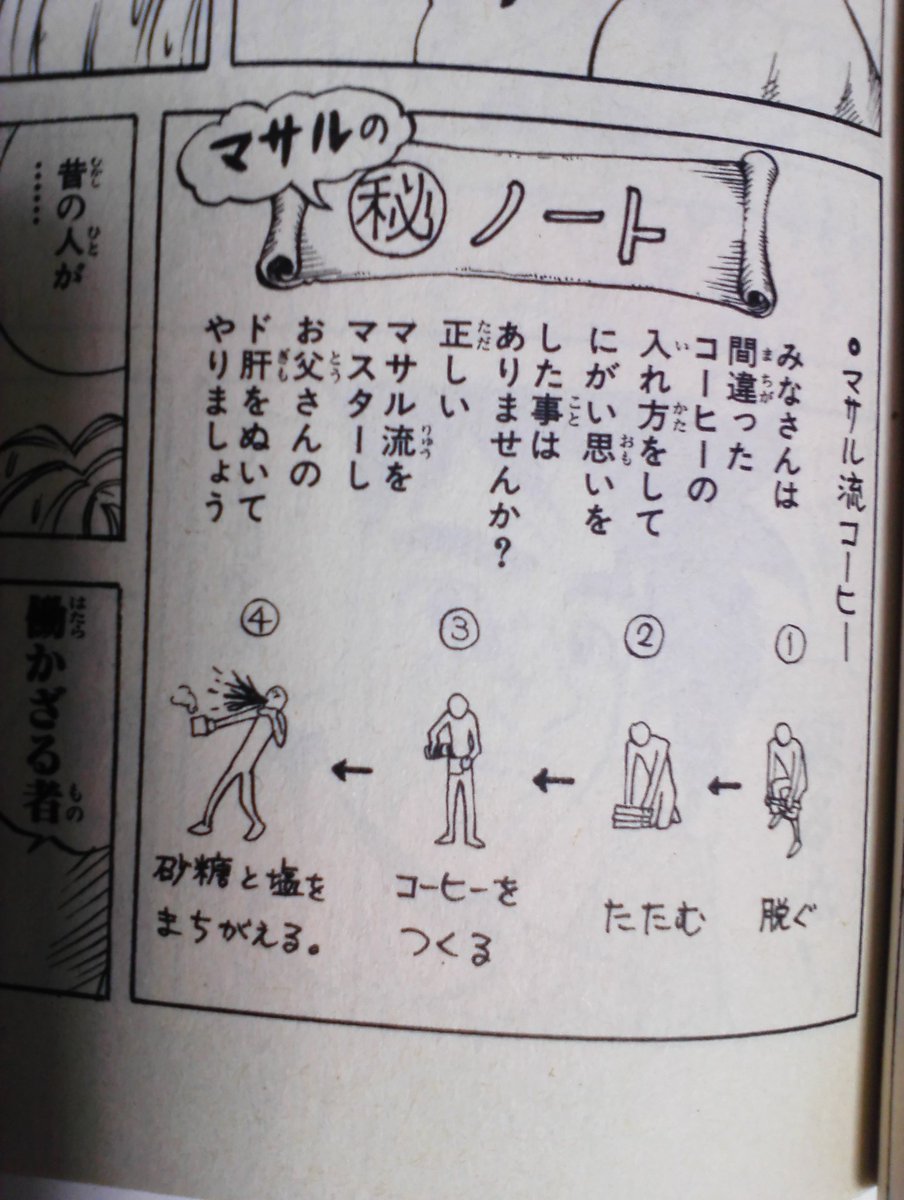 マサルの
㊙ノート
・マサル流コーヒー
みなさんは
間違った
コーヒーの
入れ方をして
にがい思いを
した事は
ありませんか?
正しい
マサル流を
マスターし
お父さんの
ド肝をぬいて
やりましょう
①
脱ぐ
②
たたむ
③
コーヒーを
つくる
④
砂糖と塩を
まちがえる。
昔の人が
……
働かざる者